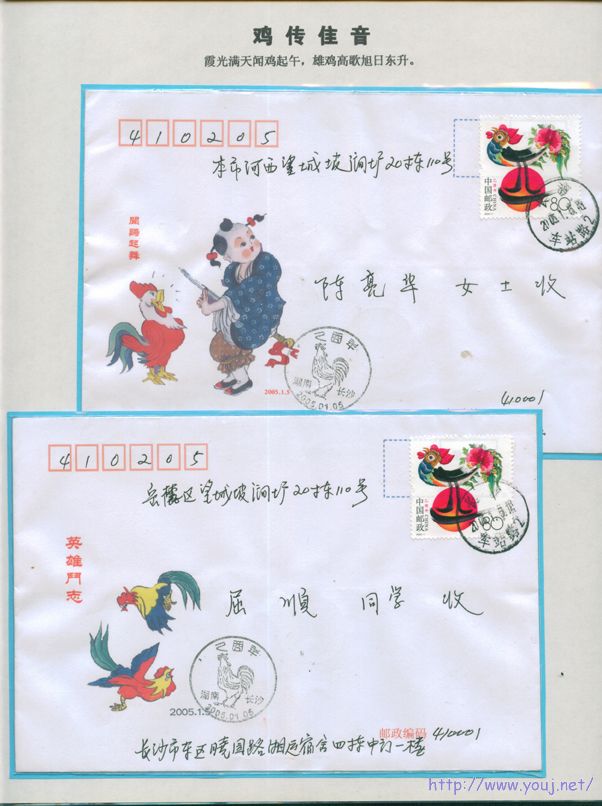 鸡传佳音
霞光满天闻鸡起午，雄鸡高歌旭日东升。
410205
本市河西望城坡涧圹20栋110号
中国邮政
聞鷄起舞
陈亮华 女士收
乙酉年
湖南 长沙
2005.01.05
2005.1.5
410001
车站路2
410205
岳麓区望城坡涧圹20栋110号
中国邮政
英雄鬥志
屈顺 同学 收
车站路2
乙酉年
湖南 长沙
2005.01.05
2005.1.5
邮政编码 410001
长沙市东区晓园路湘运宿舍四栋中门一楼
http://www.youj.net/